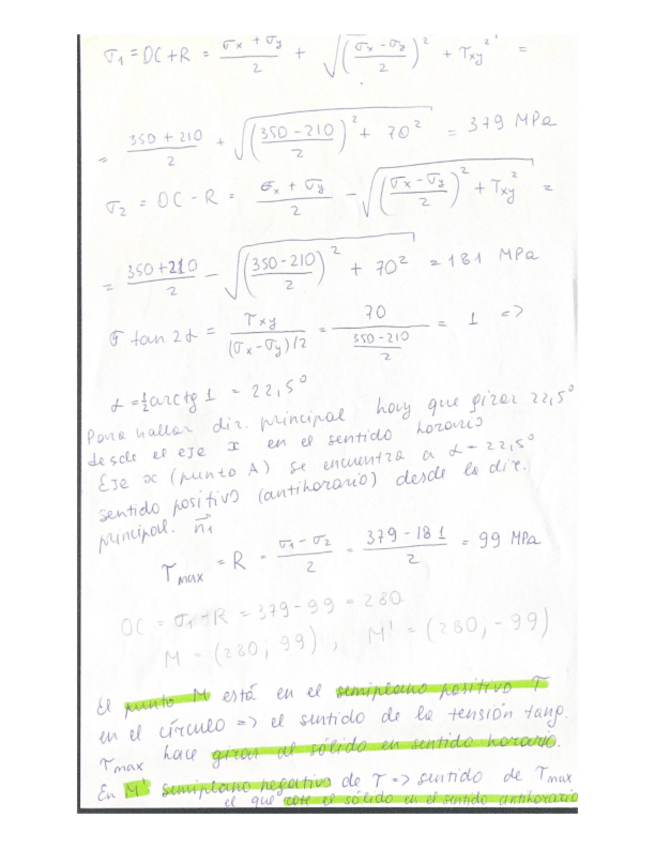 σ₁ = OC + R = (σx + σy)/2 + √(((σx - σy)/2)² + τxy²) =
= (350 + 210)/2 + √(((350 - 210)/2)² + 70²) = 379 MPa
σ₂ = OC - R = (σx + σy)/2 - √(((σx - σy)/2)² + τxy²) =
= (350 + 210)/2 - √(((350 - 210)/2)² + 70²) = 181 MPa
tan 2α = τxy/((σx - σy)/2) = 70/((350 - 210)/2) = 1 =>
α = ½ arctg 1 = 22,5°
Para hallar dir. principal hay que girar 22,5°
desde el eje x en el sentido horario
Eje x (punto A) se encuentra a α = 22,5°
sentido positivo (antihorario) desde la dir.
principal. n₁
τmax = R = (σ₁ - σ₂)/2 = (379 - 181)/2 = 99 MPa
OC = σ₁ - R = 379 - 99 = 280
M = (280; 99), M' = (280; -99)
El punto M está en el semiplano positivo τ
en el círculo => el sentido de la tensión tang.
τmax hace girar al sólido en sentido horario.
En M' semiplano negativo de τ => sentido de τmax
el que el sólido en el sentido antihorario